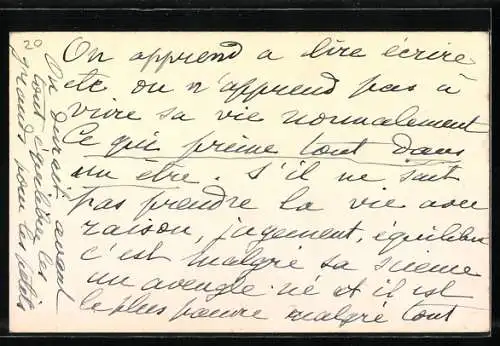 20
On apprend a lire écrire
etc on n'apprend pas à
vivre sa vie normalement
Ce qui prime tout dans
un être. S'il ne sait
pas prendre la vie avec
raison, jugement, équilibre
c'est malgré sa science
un aveugle-né et il est
le plus pauvre malgré tout
On devrait avant
tout équilibrer les
grands pour les petits